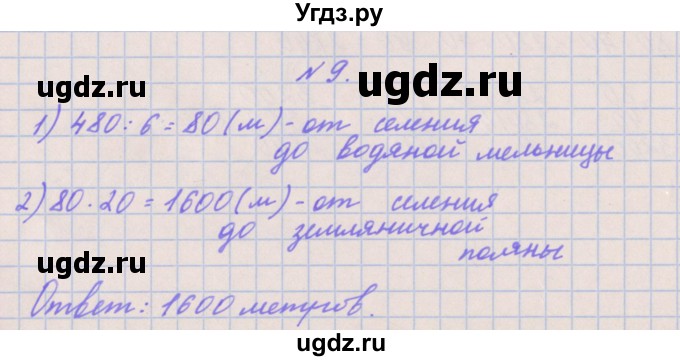 Угдз.ру
№9.
ugdz.ru ugdz.ru ugdz.ru
1) 480 : 6 = 80 (м) - от селения
до водяной мельницы
2) 80 · 20 = 1600 (м) - от селения
до земляничной
ugdz.ru поляны ugdz.ru
Ответ: 1600 метров.
ugdz.ru